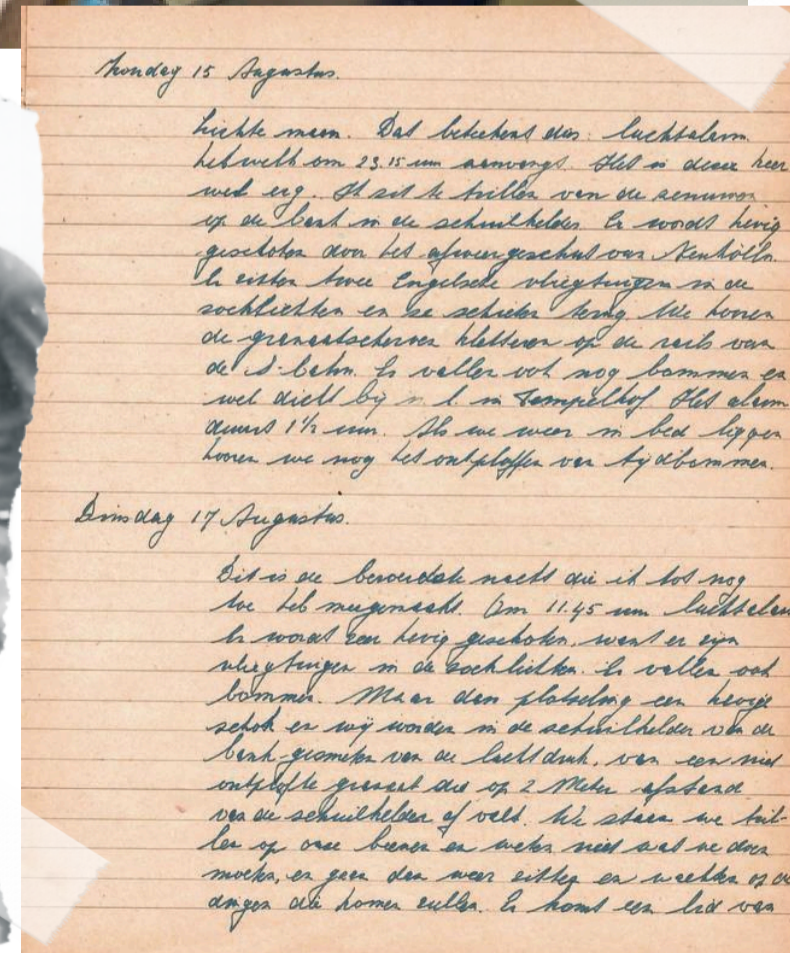 Zondag 15 Augustus.
Lichte maan. Dat betekent dus: luchtalarm.
hetwelk om 23.15 uur aanvangt. Het is deze keer
wel erg. Ik zit te trillen van de zenuwen
op de bank in de schuilkelder. Er wordt hevig
geschoten door het afweergeschut van Neukölln.
Er zitten twee Engelsche vliegtuigen in de
zoeklichten en ze schieten terug. We hooren
de granaatscherven kletteren op de rails van
de S-bahn. Er vallen ook nog bommen en
wel dicht bij n.l. in Tempelhof. Het alarm
duurt 1½ uur. Als we weer in bed liggen
hooren we nog het ontploffen van tijdbommen.
Dinsdag 17 Augustus.
Dit is de beroerdste nacht die ik tot nog
toe heb meegemaakt. Om 11.45 uur luchtalarm
Er wordt zeer hevig geschoten, want er zijn
vliegtuigen in de zoeklichten. Er vallen ook
bommen. Maar dan plotseling een hevige
schok en wij worden in de schuilkelder van de
bank gesmeten van de luchtdruk, van een niet
ontplofte granaat die op 2 Meter afstand
van de schuilkelder af valt. We staan te tril-
len op onze beenen en weten niet wat we doen
moeten, en gaan dan weer zitten en wachten op de
dingen die komen zullen. Er komt een lid van